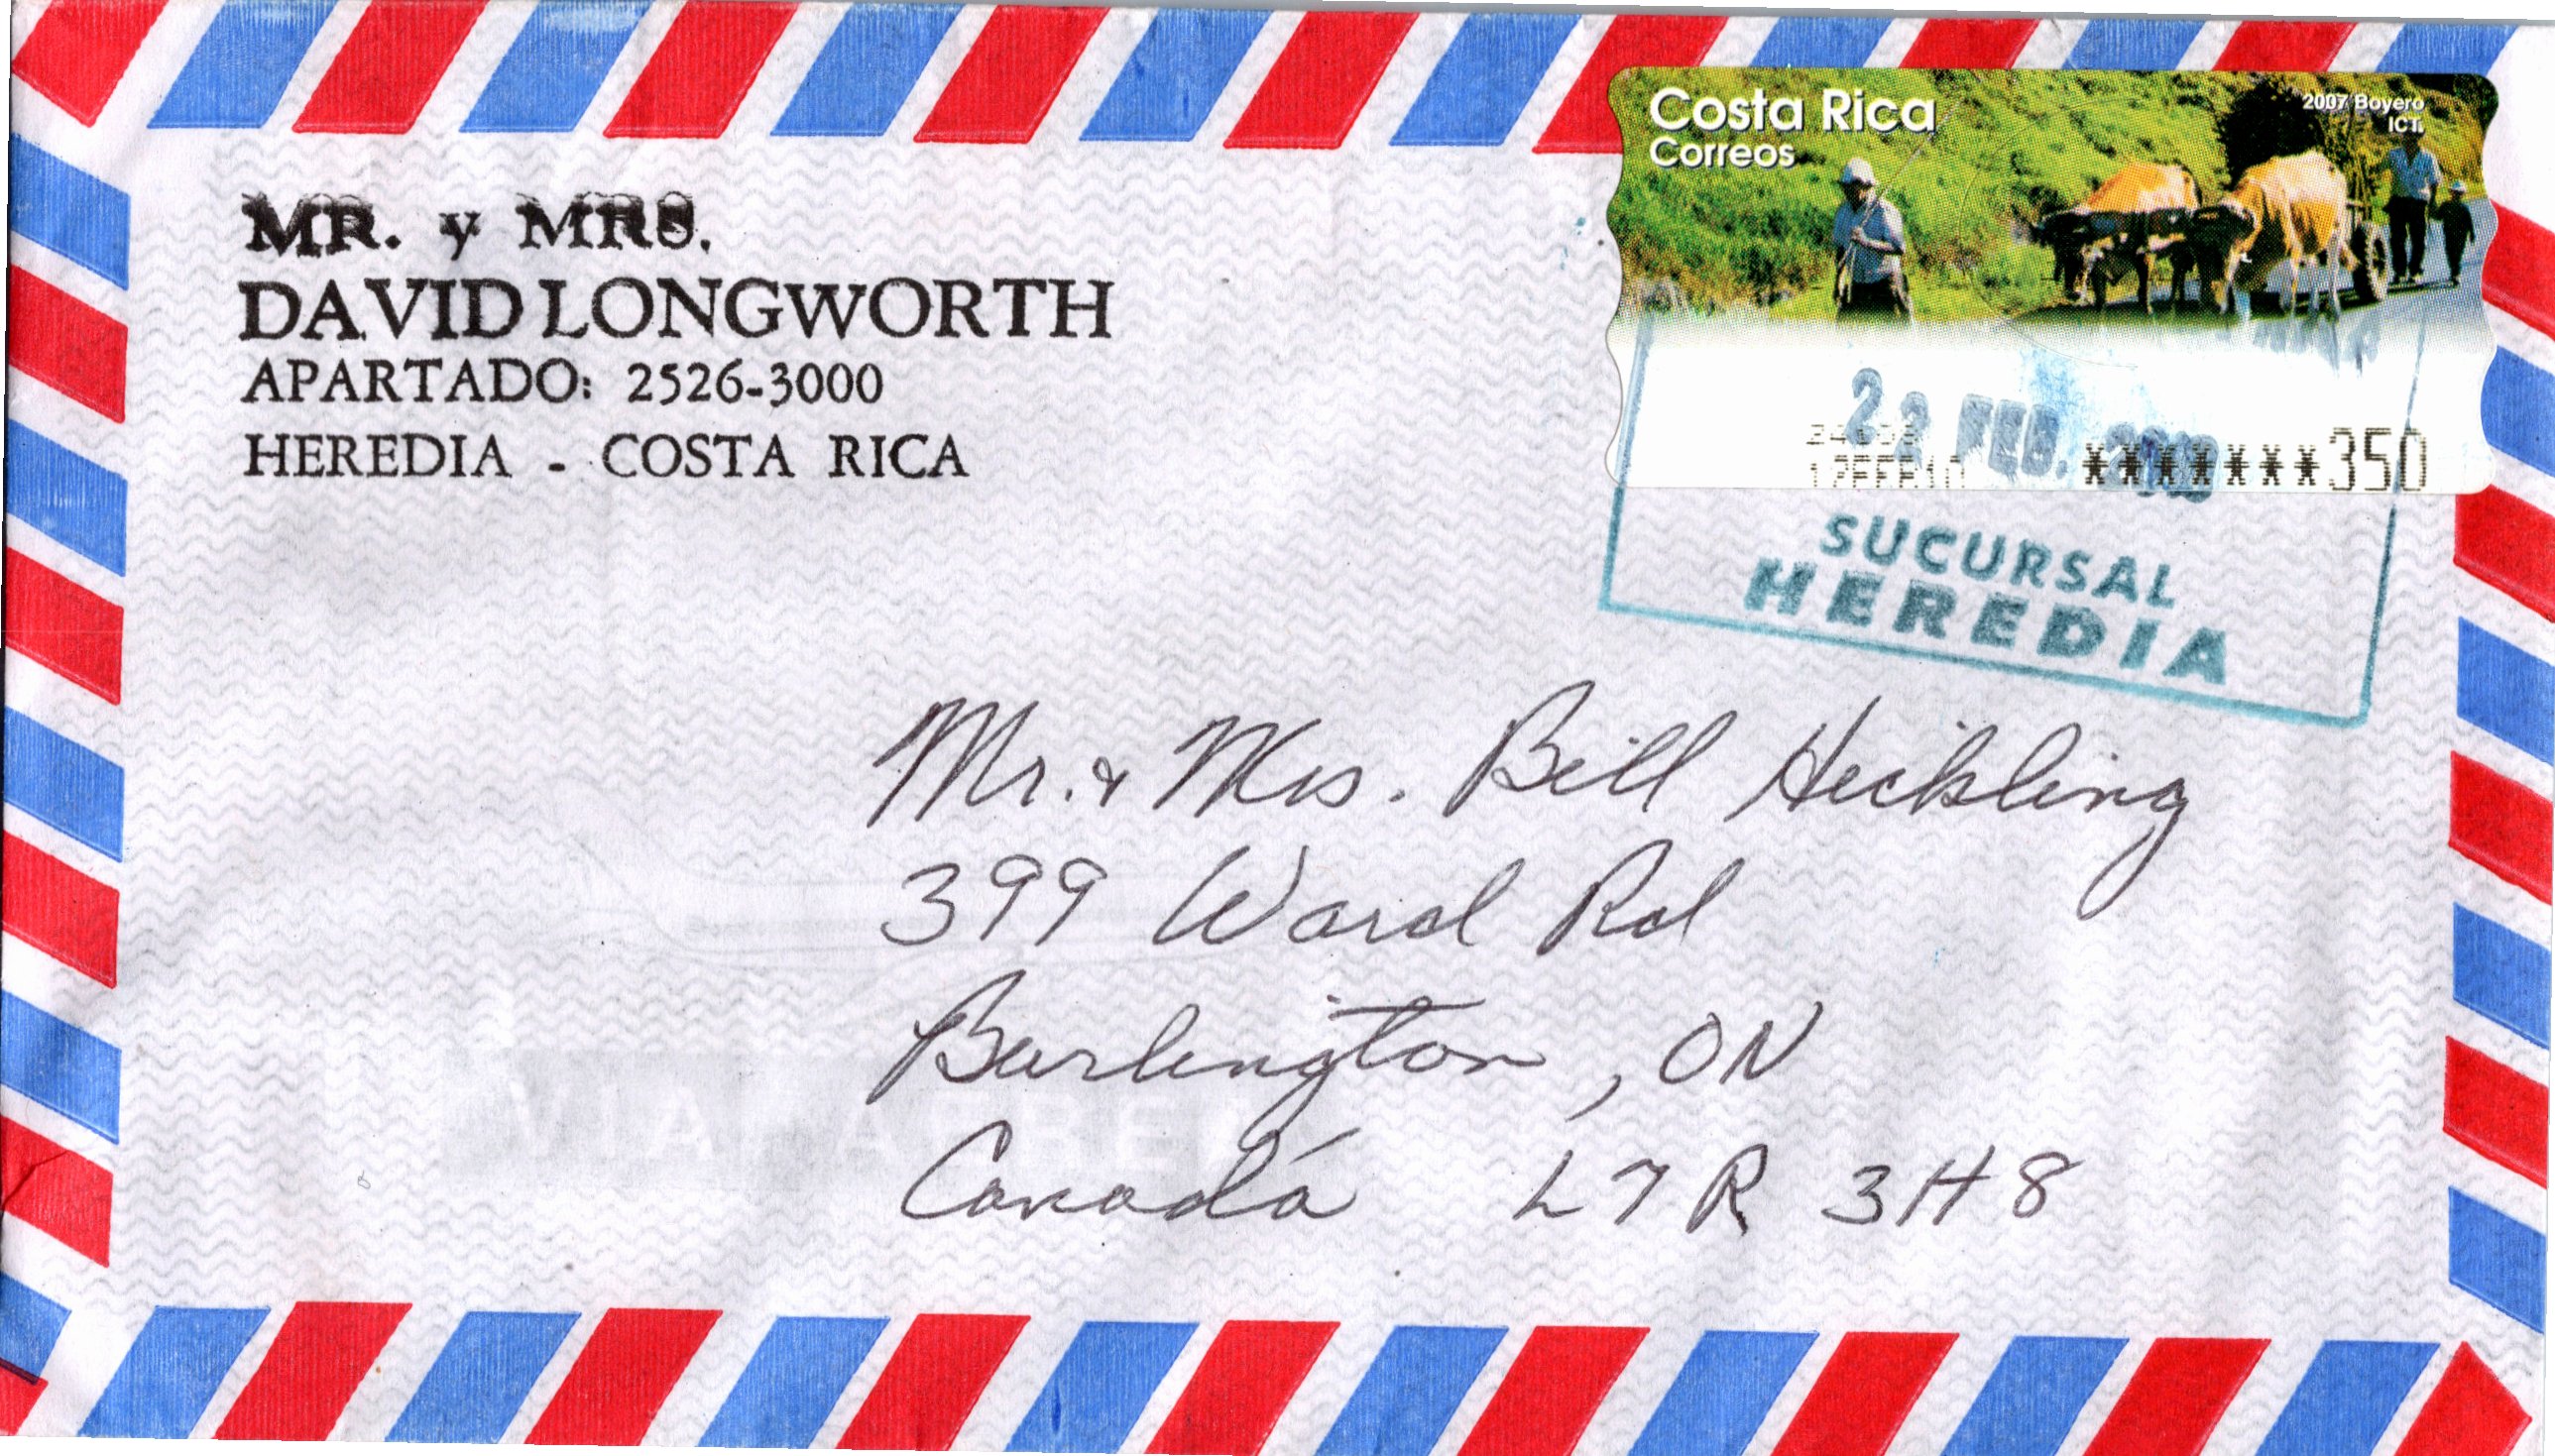 MR. y MRS.
DAVID LONGWORTH
APARTADO: 2526-3000
HEREDIA - COSTA RICA
Costa Rica
Correos
2007 Boyero
ICT
22 FEB. 2010
*******350
SUCURSAL
HEREDIA
Mr. & Mrs. Bill Hickling
399 Ward Rd
Burlington, ON
Canadá L7R 3H8
VIA AEREA